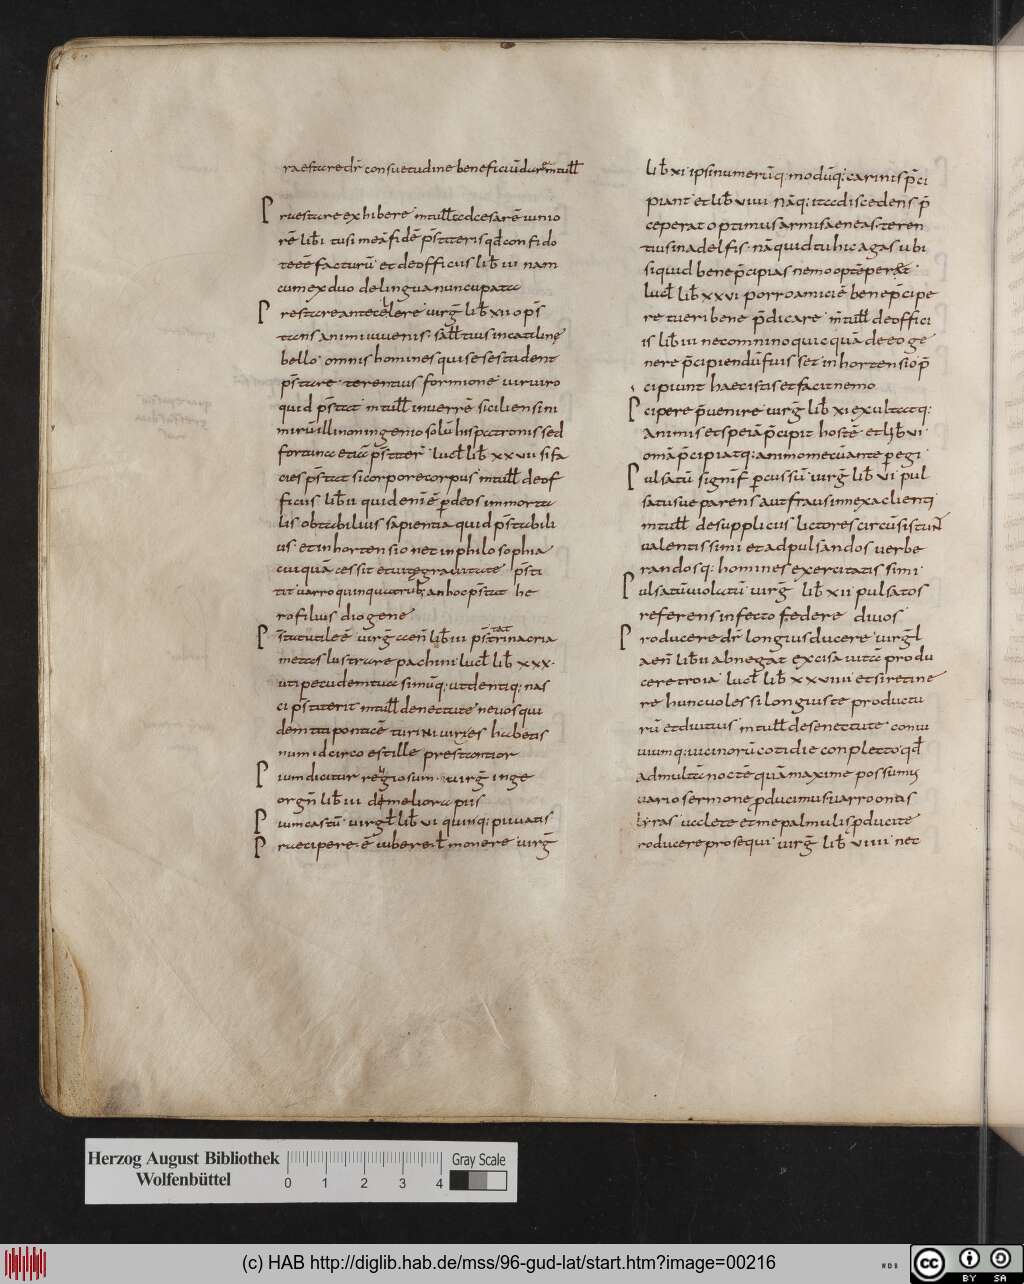 raestare dr̄ consuetudine beneficiū dare m̄ tull̄
Praestare exhibere m̄ tull̄ ad cesarē iunio
rē lib̄ i tusi meā fidē p̄stiteris qđ confido
te eē facturū et de officiis lib̄ iii nam
cum ex duo de lingua nuncupata
Prestare antecelere virḡ lib̄ xii o p̄s
tans animi iuuenis sall̄tius in catiline
bello omnis homines qui se se student
p̄stare terentius formione vir viro
quid p̄stat m̄ tull̄ in verrē siciliensi ni
mirū illi non ingenio solū hispatronis sed
fortuna etiā p̄stiter̄ lucl̄ lib̄ xxvii si fa
cies p̄stat si corpore corpus m̄ tull̄ de of
ficiis lib̄ ii quid enī ē p deos immorta
lis obtabilius sapientia quid p̄stabili
us et in hortensio nec in philosophia
cuiquā cessit et uitę grauitate p̄sti
tit varro quinquatrib; an hoc p̄stat he
rofilius diogene
P s̄tat utile ē virḡ aen̄ lib̄ iii p̄stat trinacria
metas lustrare pachini lucl̄ lib̄ xxx
uti pecudem tua simūq; ut dentiq; nas
ci p̄stiterit m̄ tull̄ de nectute ne uos qui
dem titi pontacē turini vires habetis
num idcirco est ille prestantior
Pium dicitur regiosum virḡ in ge
orgn̄ lib̄ iii dī meliora piis
Pium castū virgl̄ lib̄ vi quinq; pii vatis
Praecipere ē iubere ul̄ monere virḡ
lib̄ xi ipsi numerūq modūq; carinis p̄ci
piant et lib̄ viiii nāq; ita discedens p̄
ceperat optimus armis aeneas teren
tius in adelfis nā quid tu hic agas ubi
siquid bene p̄cipias nemo optēperet
lucl̄ lib̄ xxvi porro amiciē bene p̄cipe
re tueri bene p̄dicare m̄ tull̄ de offici
is lib̄ iii nec omnino quicquā de eo ge
nere p̄cipiendū fuis set in hortensio p̄
cipiunt haec istis et facit nemo
Pcipere p̄venire virḡ lib̄ xi exultatq;
animis et speiā p̄cipit hostē et lib̄ vi
omā p̄cipi atq; animo mecū ante peregi
Pulsatū signif̄ percussū virḡ lib̄ vi pul
satusue parens aut fraus innexa clienti
m̄ tull̄ de supplicus lictores circū sistunt
valentissimi et ad pulsandos uerbe
randosq; homines exercitatis simi
Pulsatū violatū virḡ lib̄ xii pulsatos
referens infecto federe divos
Producere dr̄ longius ducere virgl̄
aen̄ lib̄ ii abnegat excisa vitā produ
cere troia lucl̄ lib̄ xxviiii et si retine
re hunc voles si longius te productu
rū et diutius m̄ tull̄ de senectute conui
uiumq; uicinorū cotidie conplecto qđ
ad multā noctē quā maxime possumus
vario sermone pducimus varro ontis
lyras valete et me palmulis pducite
Producere prosequi virḡ lib̄ viiii nec
Herzog August Bibliothek
Wolfenbüttel
0 1 2 3 4
Gray Scale
(c) HAB http://diglib.hab.de/mss/96-gud-lat/start.htm?image=00216
WDB
cc BY SA